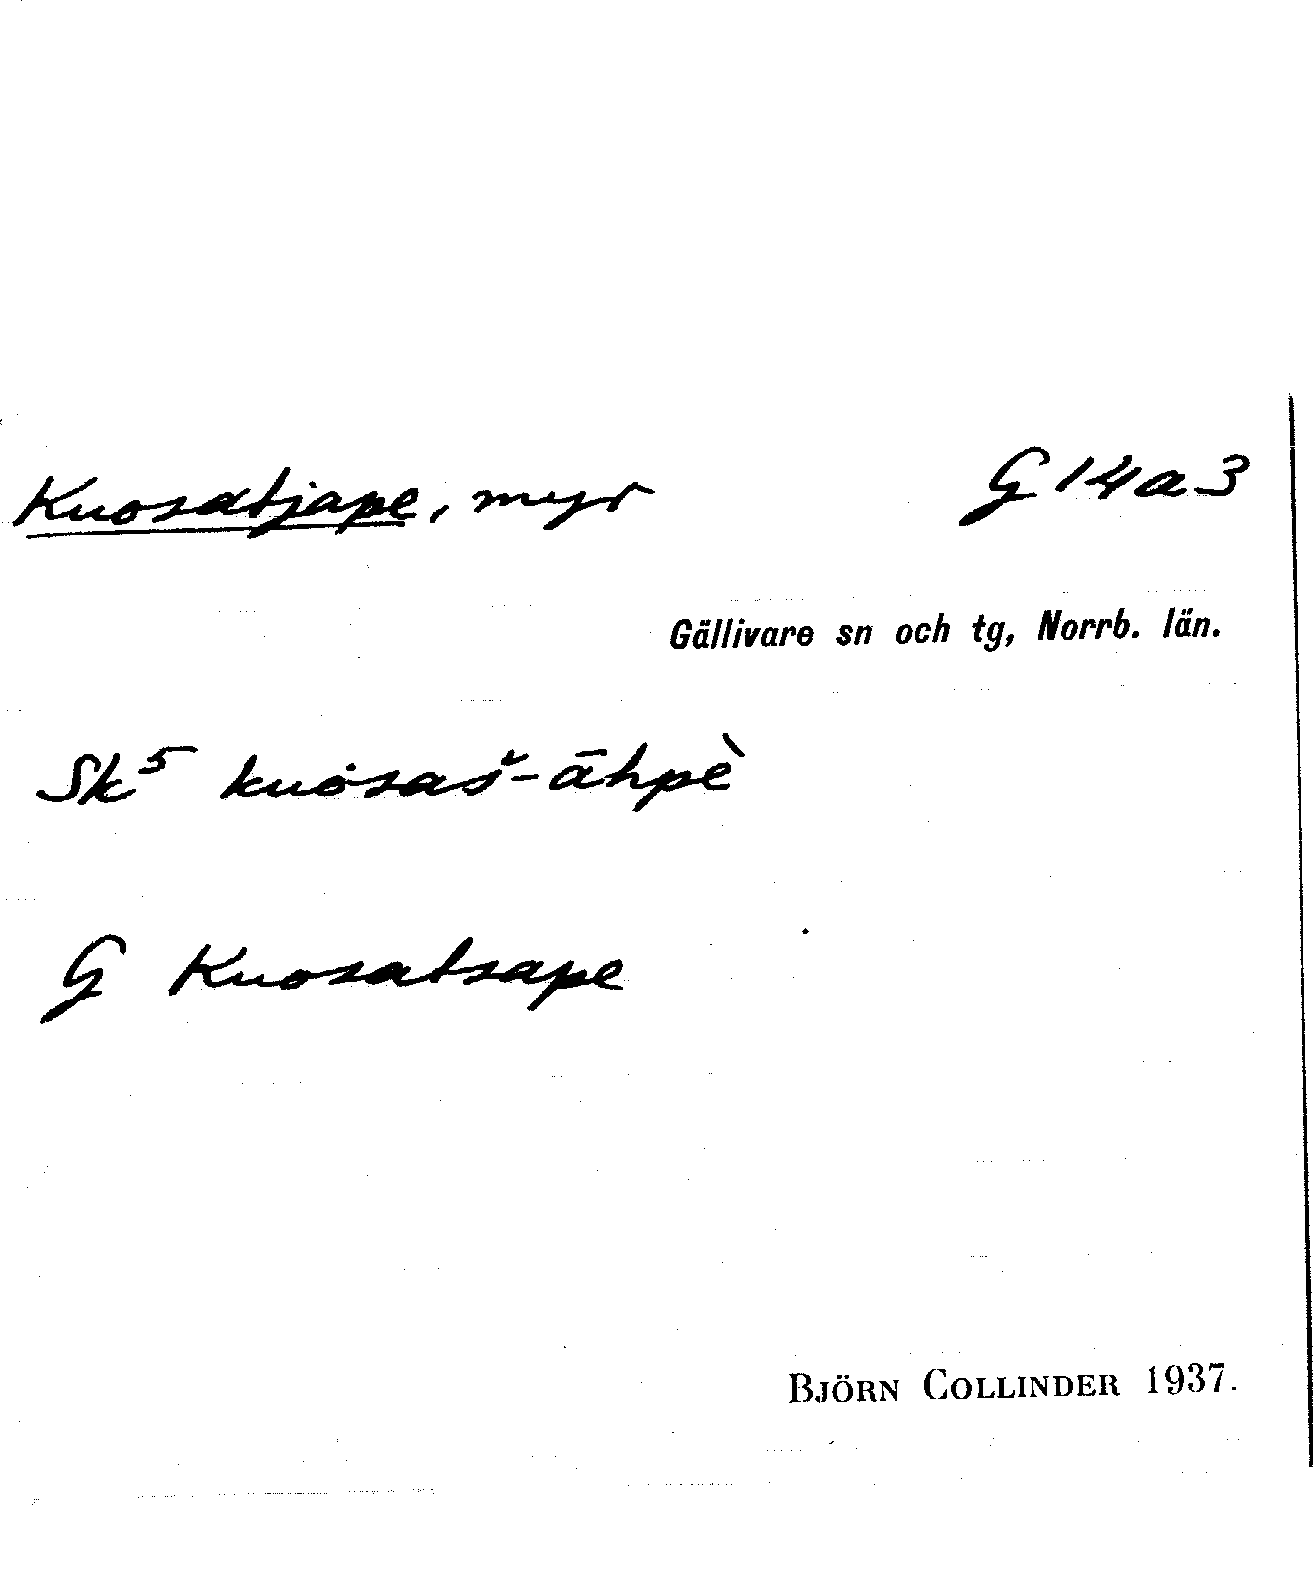 Kuosatjape, myr G 14 a 3
Gällivare sn och tg, Norrb. län.
Sk⁵ kuȯsaš-āhpè
G Kuosatsape
BJÖRN COLLINDER 1937.